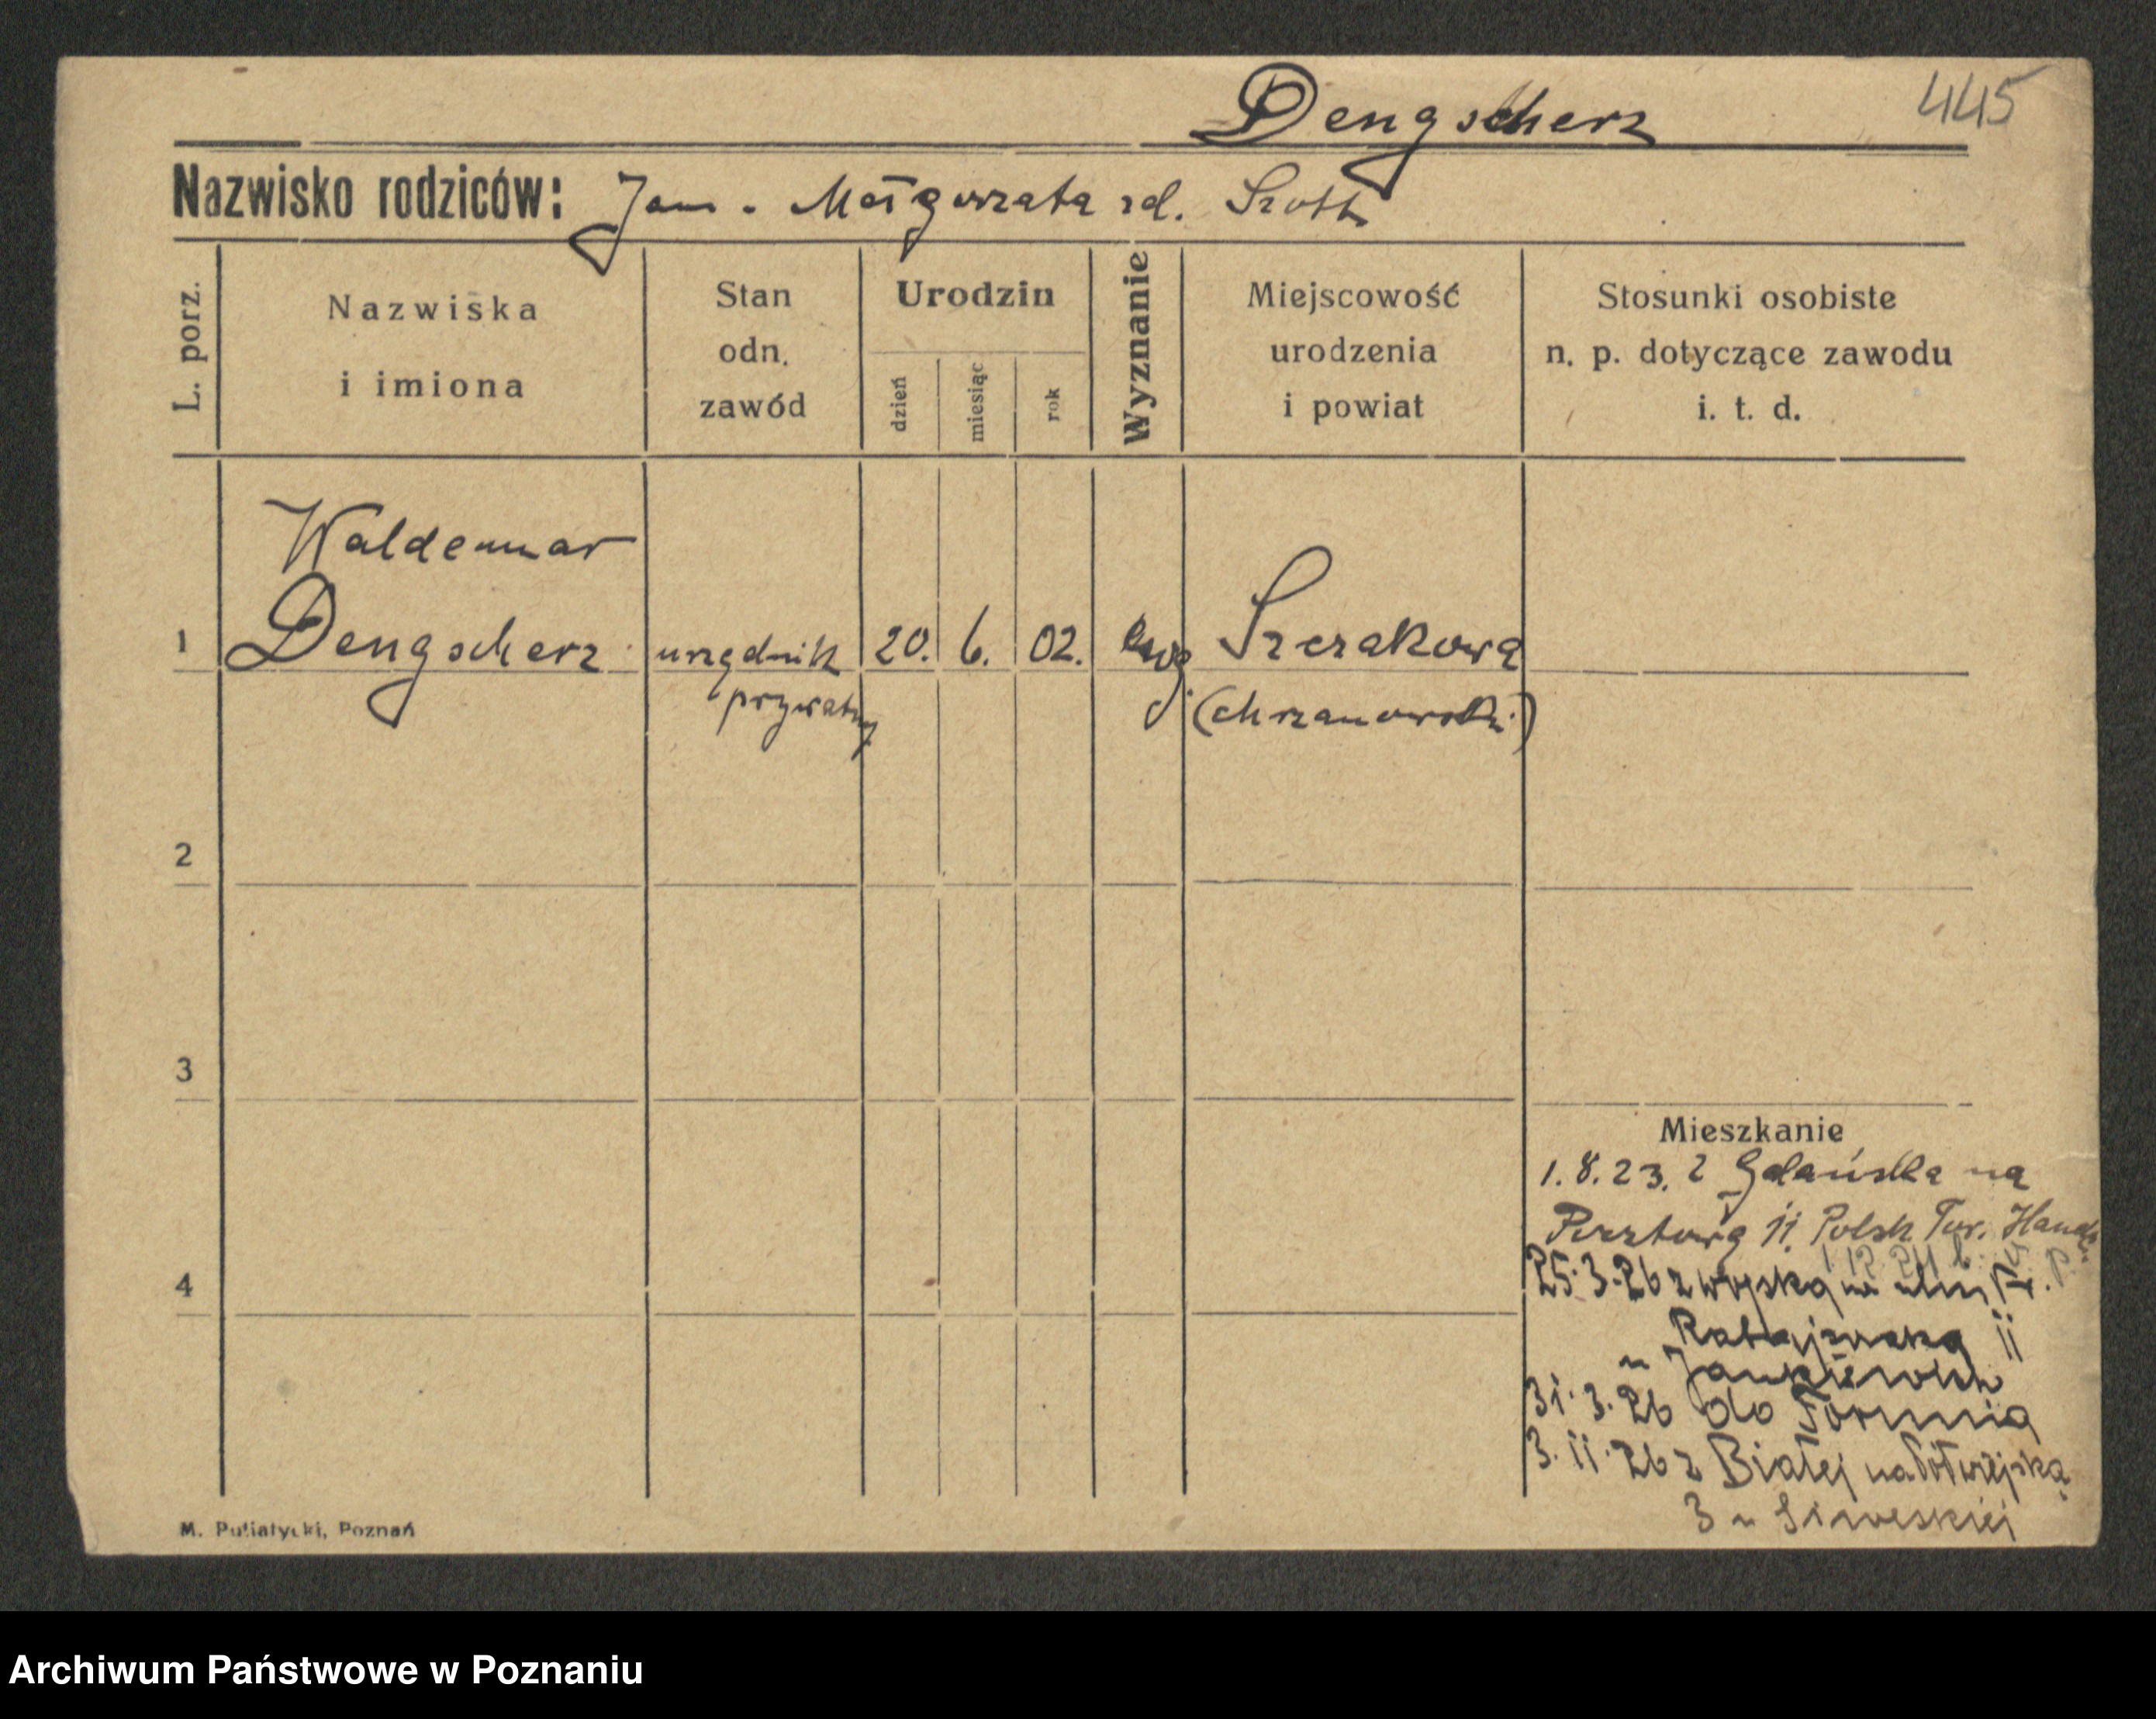 Dengscherz 445
Nazwisko rodziców: Jan - Małgorzata zd. Szott
L. porz.
Nazwiska
i imiona
Stan
odn.
zawód
Urodzin
dzień
miesiąc
rok
Wyznanie
Miejscowość
urodzenia
i powiat
Stosunki osobiste
n. p. dotyczące zawodu
i. t. d.
Waldemar
1 Dengscherz urzędnik 20. 6. 02. ewg. Szczakowa
prywatny (chrzanowski)
2
3
4
Mieszkanie
1.8.23. z Gdańska na
Pocztową 11. Polsk. Tow. Handl.
25.3.26 z wojska
Ratajczaka 11
u Jankiewicz
31.3.26 do Torunia
3.11.26 z Białej na Półwiejską
3 u
M. Putiatycki, Poznań
Archiwum Państwowe w Poznaniu